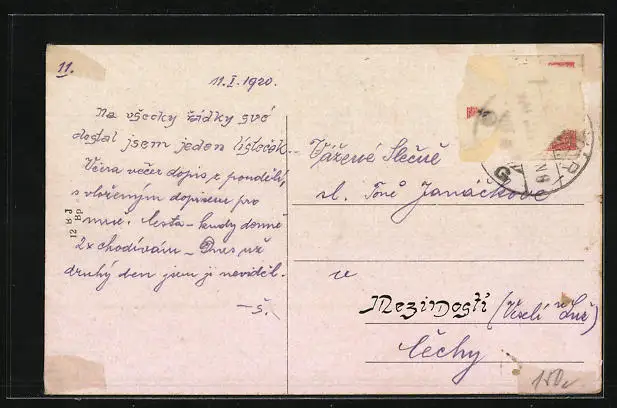 11.
11.I.1920.
Na všecky řádky své
dostal jsem jeden lísteček.
Včera večer dopis z pondělí,
s vloženým dopisem pro
mně. Cesta - kudy denně
2x chodívám - Dnes už
druhý den jsem ji neviděl.
-Š.
12 BJ
Bp
Vážené Slečně
sl. Toně Janáčkové
v
Mezimostí (Veselí n Luž)
Čechy
150